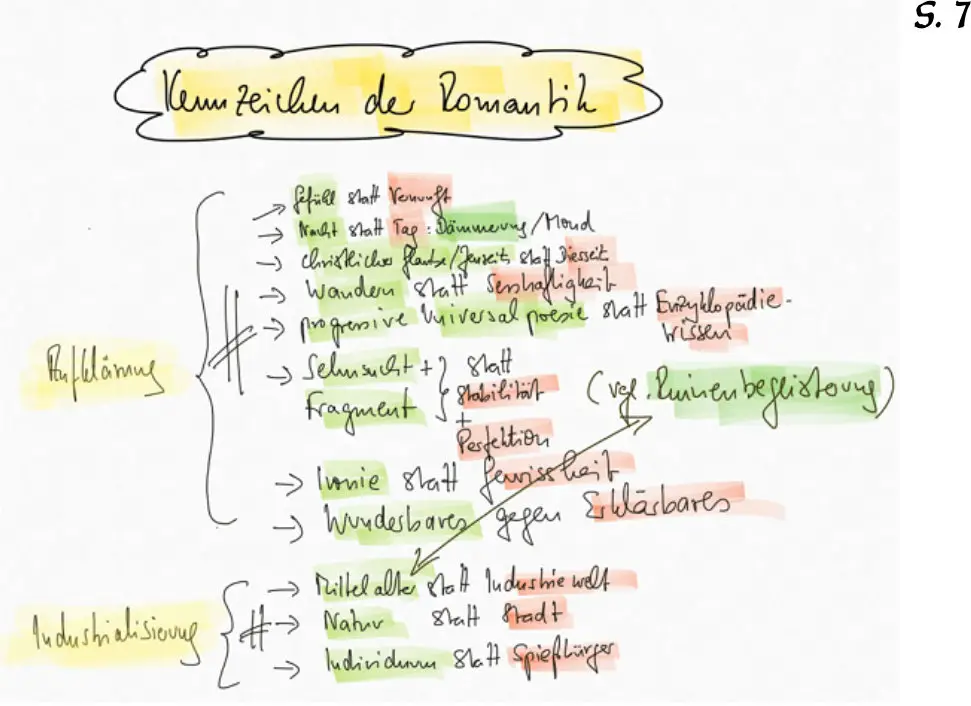 S. 7
Kennzeichen der Romantik
→ Gefühl statt Vernunft
→ Nacht statt Tag : Dämmerung / Mond
→ christlicher Glaube / Jenseits statt Diesseit
→ Wandern statt Sesshaftigkeit
→ progressive Universalpoesie statt Enzyklopädie-
wissen
Aufklärung
→ Sehnsucht + } statt
Fragment } Stabilität
+
Perfektion
(vgl. Ruinenbegeisterung)
→ Ironie statt Gewissheit
→ Wunderbares gegen Erklärbares
→ Mittelalter statt Industriewelt
Industrialisierung
→ Natur statt Stadt
→ Individuum statt Spießbürger